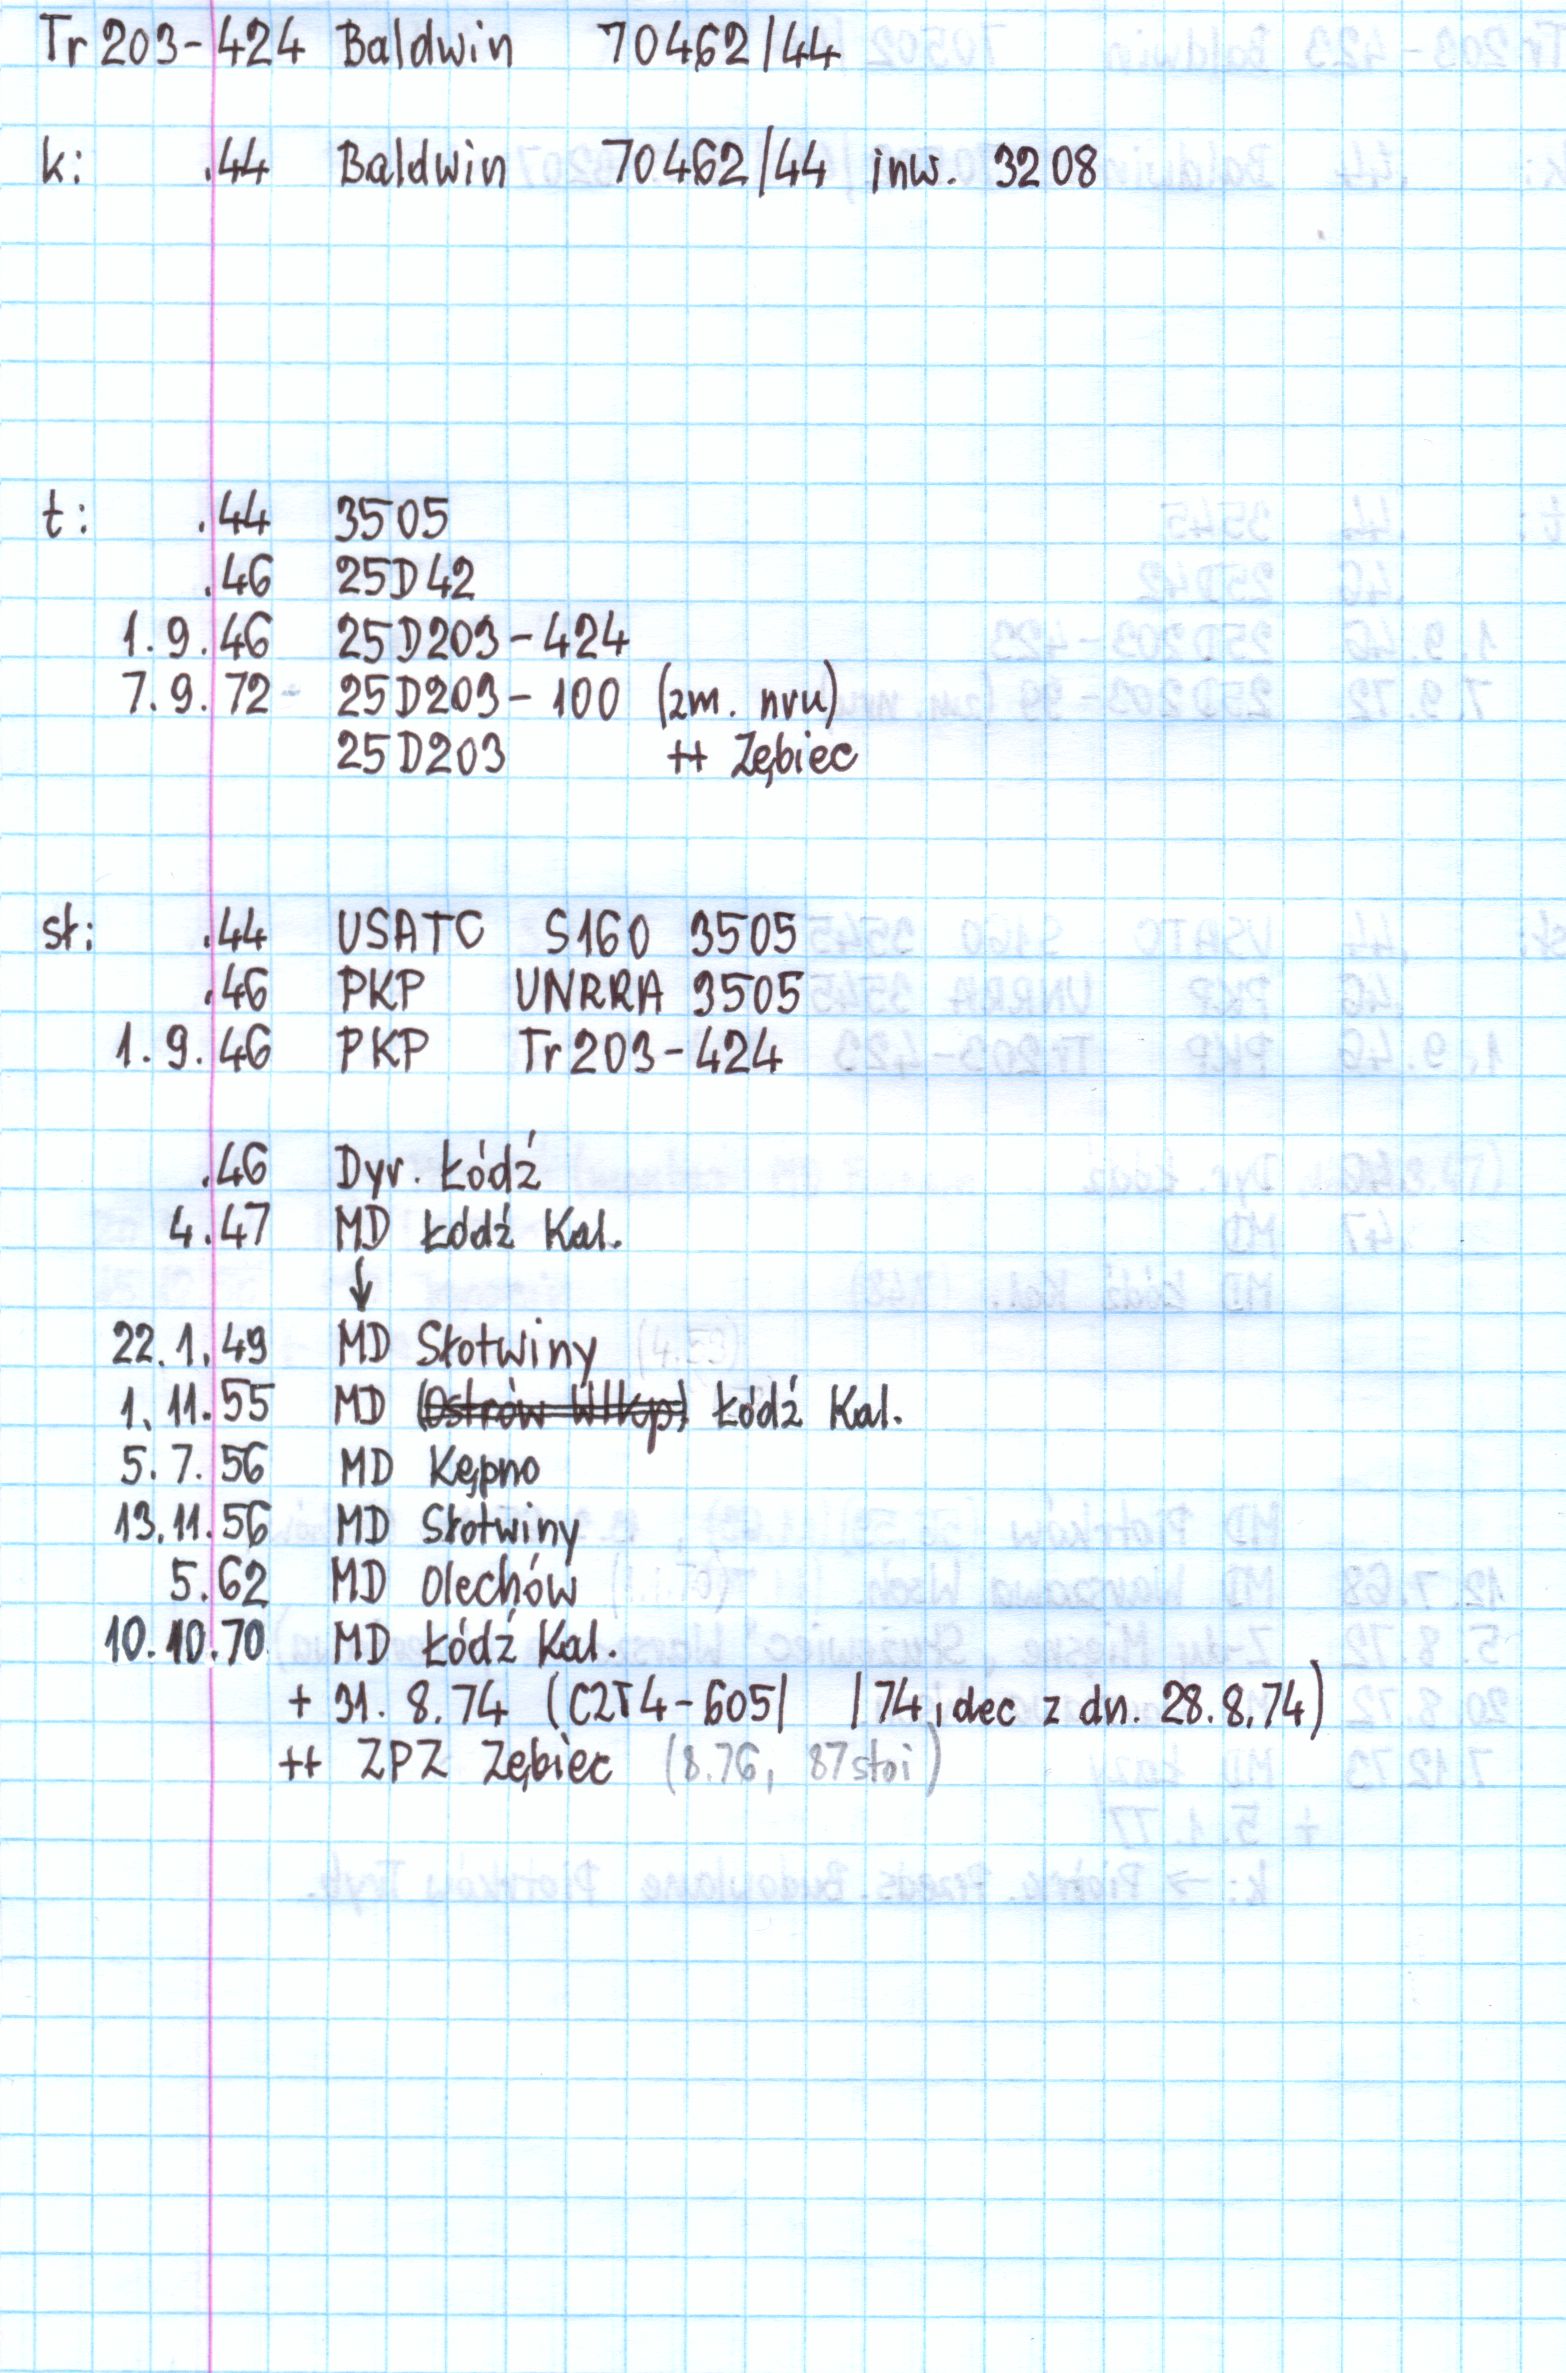 Tr 203-424 Baldwin 70462/44
k: .44 Baldwin 70462/44 inw. 3208
t: .44 3505
.46 25D42
1.9.46 25D203-424
7.9.72 25D203-100 (zm. nru)
25D203 ++ Zębiec
sł: .44 USATC S160 3505
.46 PKP UNRRA 3505
1.9.46 PKP Tr203-424
.46 Dyr. Łódź
4.47 MD Łódź Kal.
↓
22.1.49 MD Słotwiny
1.11.55 MD (Ostrów Wlkp) Łódź Kal.
5.7.56 MD Kępno
13.11.56 MD Słotwiny
5.62 MD Olechów
10.10.70 MD Łódź Kal.
+ 31.8.74 (C2T4-605/ /74, dec z dn. 28.8.74)
++ ZPZ Zębiec (8.76, 87 stoi)